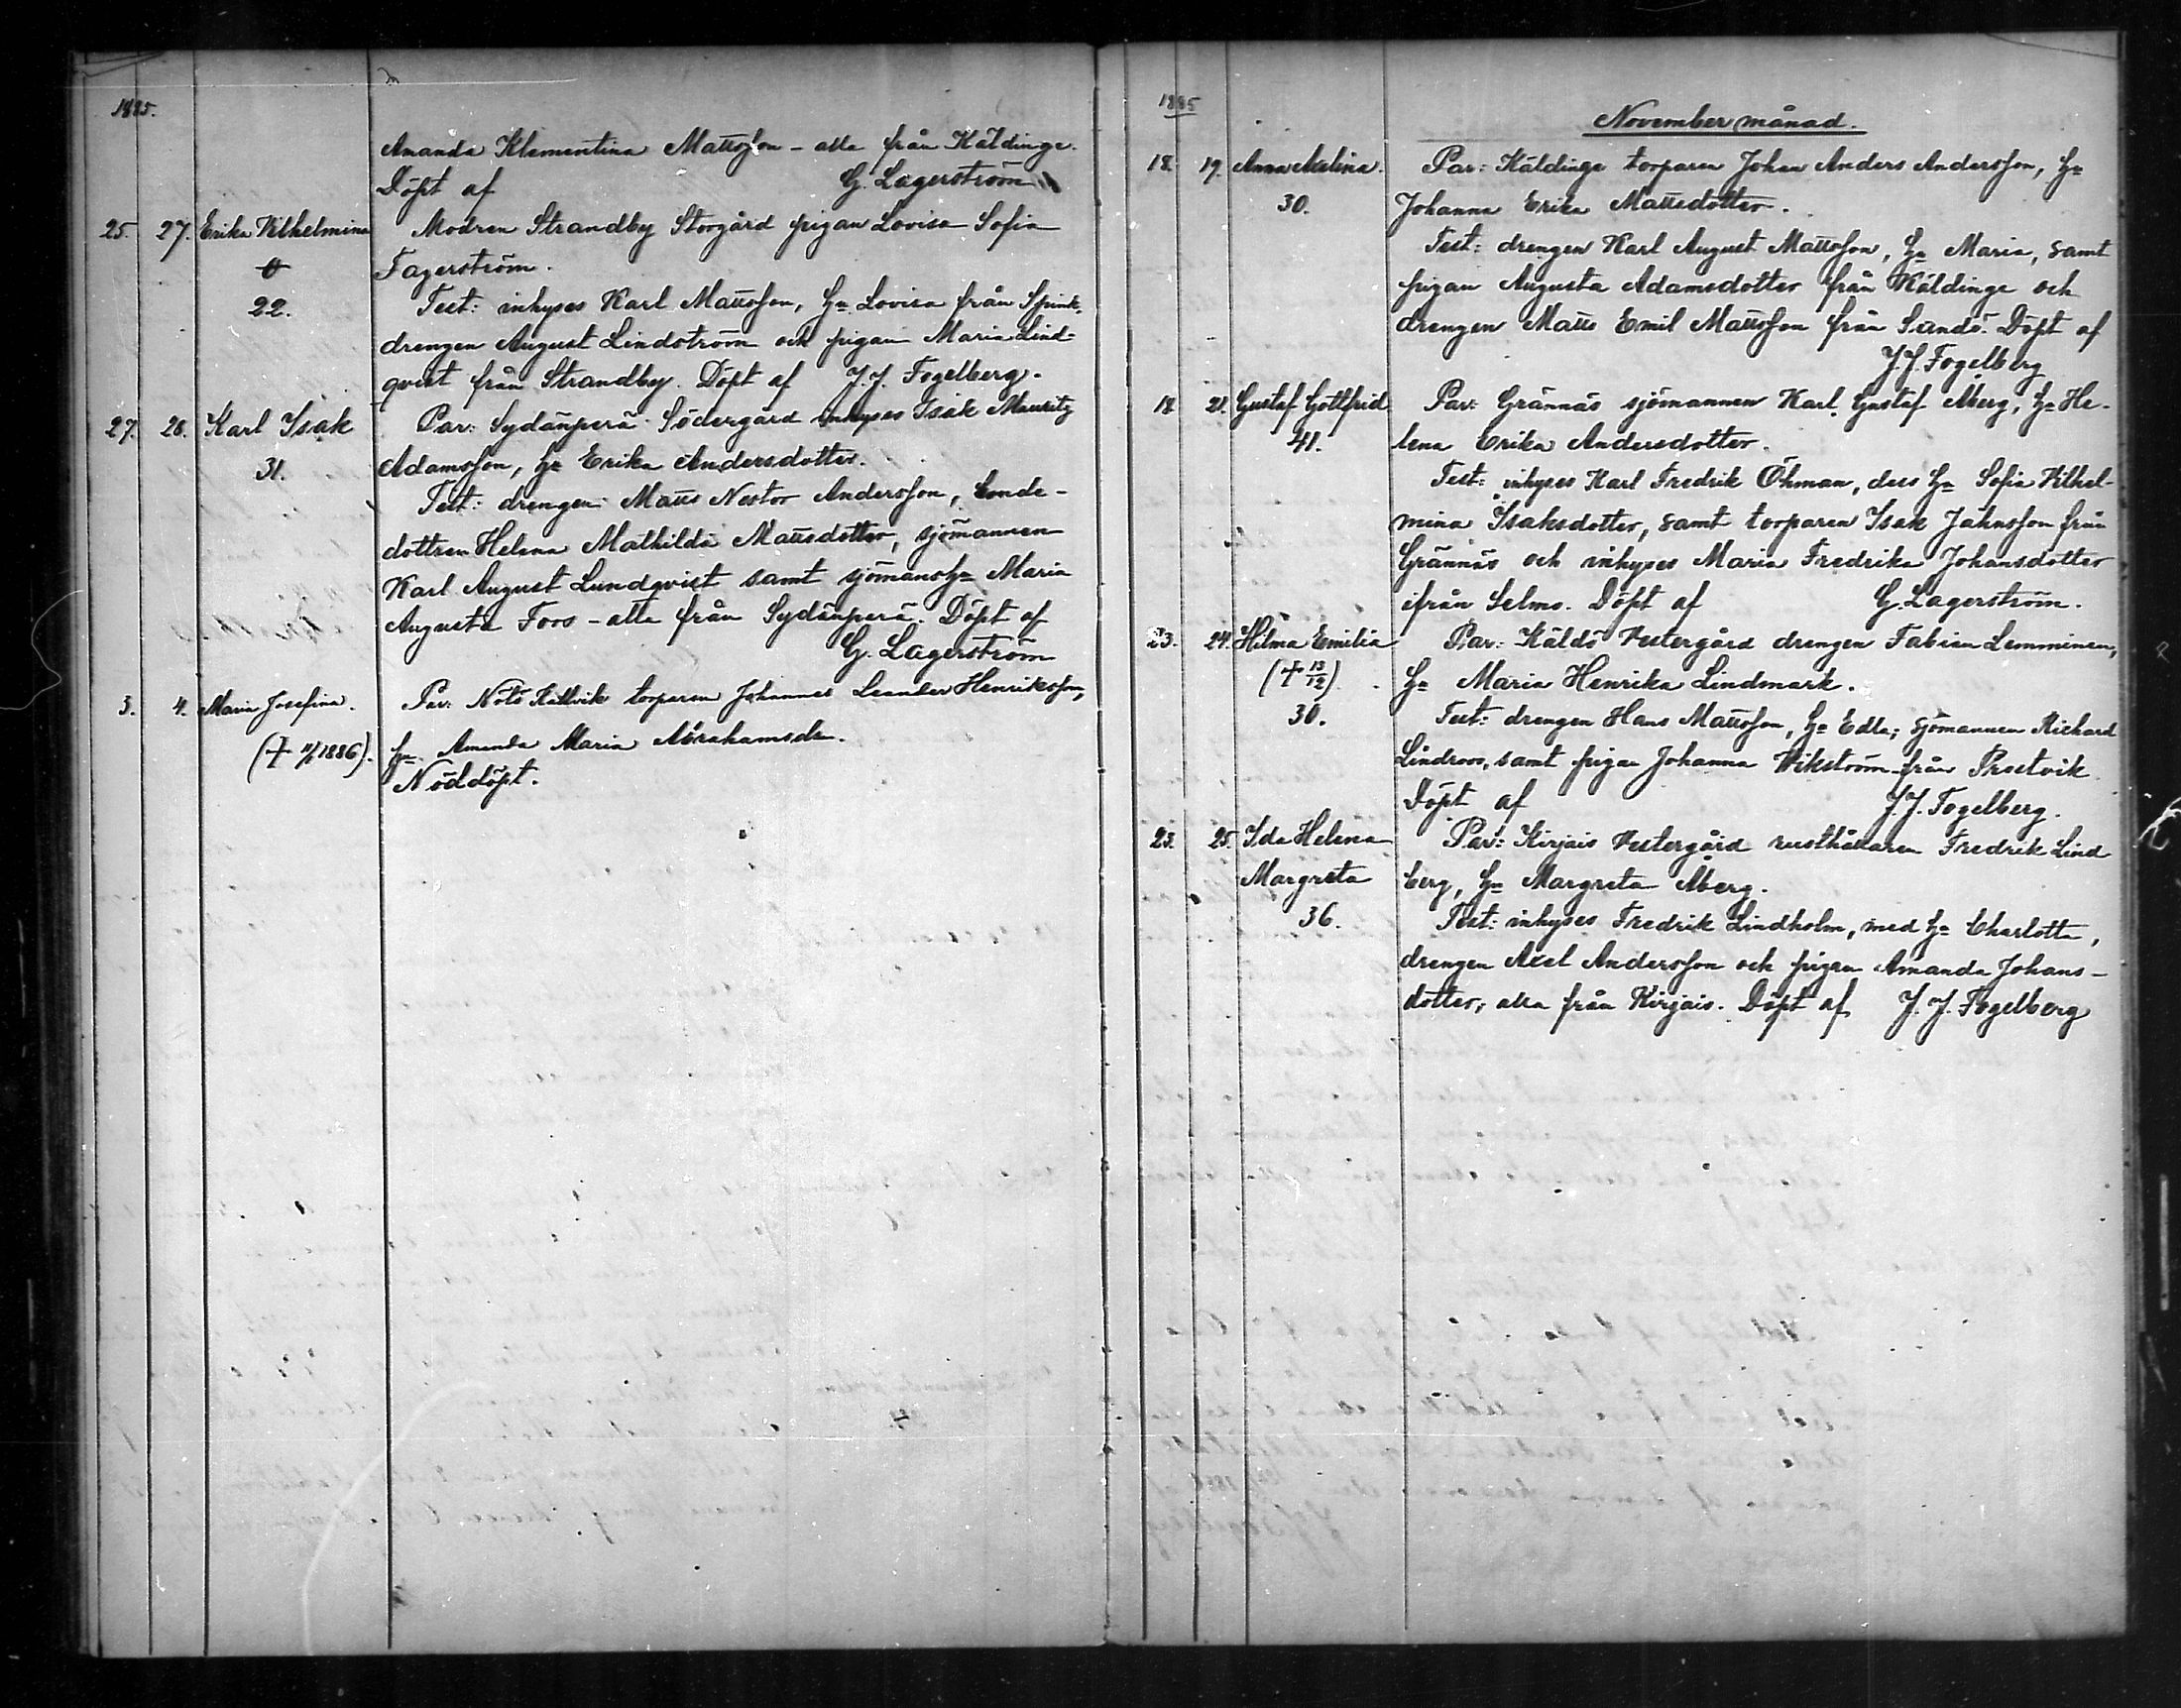 1885.
Amanda Klementina Mattsson - alla från Käldinge.
Döpt af G. Lagerström
25. 27. Erika Vilhelmina Modren Strandby Storgård pigan Lovisa Sofia
Fagerström.
22. Test: inhyses Karl Mattsson, Hu Lovisa från Spink,
drengen August Lindström och pigan Maria Lind-
qvist från Strandby. Döpt af J. J. Fogelberg.
27. 28. Karl Isak Par: Sydänperä Södergård inhyses Isak Mauritz
31. Adamsson, Hu Erika Andersdotter.
Test: drengen Matts Nestor Andersson, bonde-
dottren Helena Mathilda Mattsdotter, sjömannen
Karl August Lundqvist samt sjömanshu Maria
Augusta Foos - alla från Sydänperä. Döpt af
G. Lagerström
3. 4. Maria Josefina. Par: Nötö Kallvik torparen Johannes Leander Henriksson,
1886). Hu Amanda Maria Abrahamsdr.
Nöddöpt.
1885
November månad.
18. 19. Anna Aalina. Par: Käldinge torparen Johan Anders Andersson, Hu
30. Johanna Erika Mattsdotter.
Test: drengen Karl August Mattsson, Hu Maria, samt
pigan Augusta Adamsdotter från Käldinge och
drengen Matts Emil Mattsson från Sandö. Döpt af
J. J. Fogelberg
18. 21. Gustaf Gottfrid Par: Grännäs sjömannen Karl Gustaf Åberg, Hu He-
41. lena Erika Andersdotter.
Test: inhyses Karl Fredrik Öhman, dess Hu Sofia Vilhel-
mina Isaksdotter, samt torparen Isak Jahnsson från
Grännäs och inhyses Maria Fredrika Johansdotter
ifrån Selmo. Döpt af G. Lagerström.
23. 24. Hilma Emilia Par: Käldö Vestergård drengen Fabian Lemminen,
(† 13/12) Hu Maria Henrika Lindmark.
30. Test: drengen Hans Mattsson, Hu Edla; sjömannen Richard
Lindroos, samt pigan Johanna Vikström från Prostvik
Döpt af J. J. Fogelberg.
23. 25. Ida Helena Par: Kirjais Vestergård rusthållaren Fredrik Lind
Margreta berg, Hu Margreta Åberg.
36. Test: inhyses Fredrik Lindholm, med Hu Charlotta,
drengen Axel Andersson och pigan Amanda Johans-
dotter, alla från Kirjais. Döpt af J. J. Fogelberg